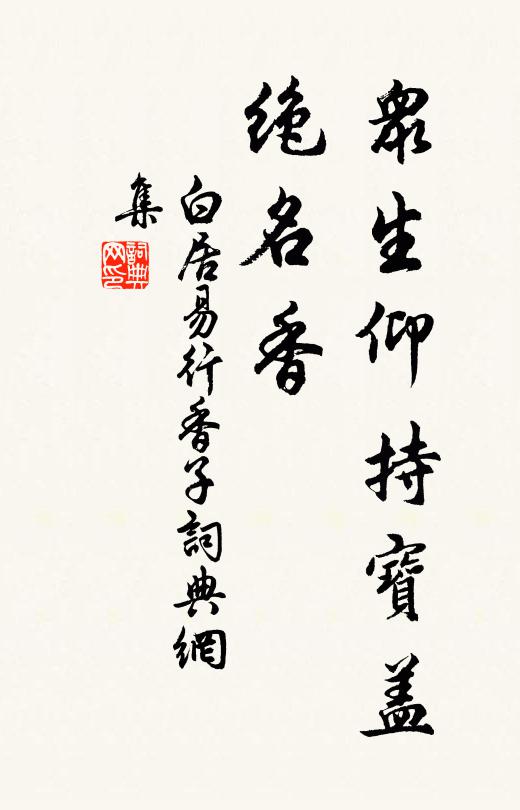 眾生仰持寶盖
绝名香
白居易行香子詞典網
集
詞典网印